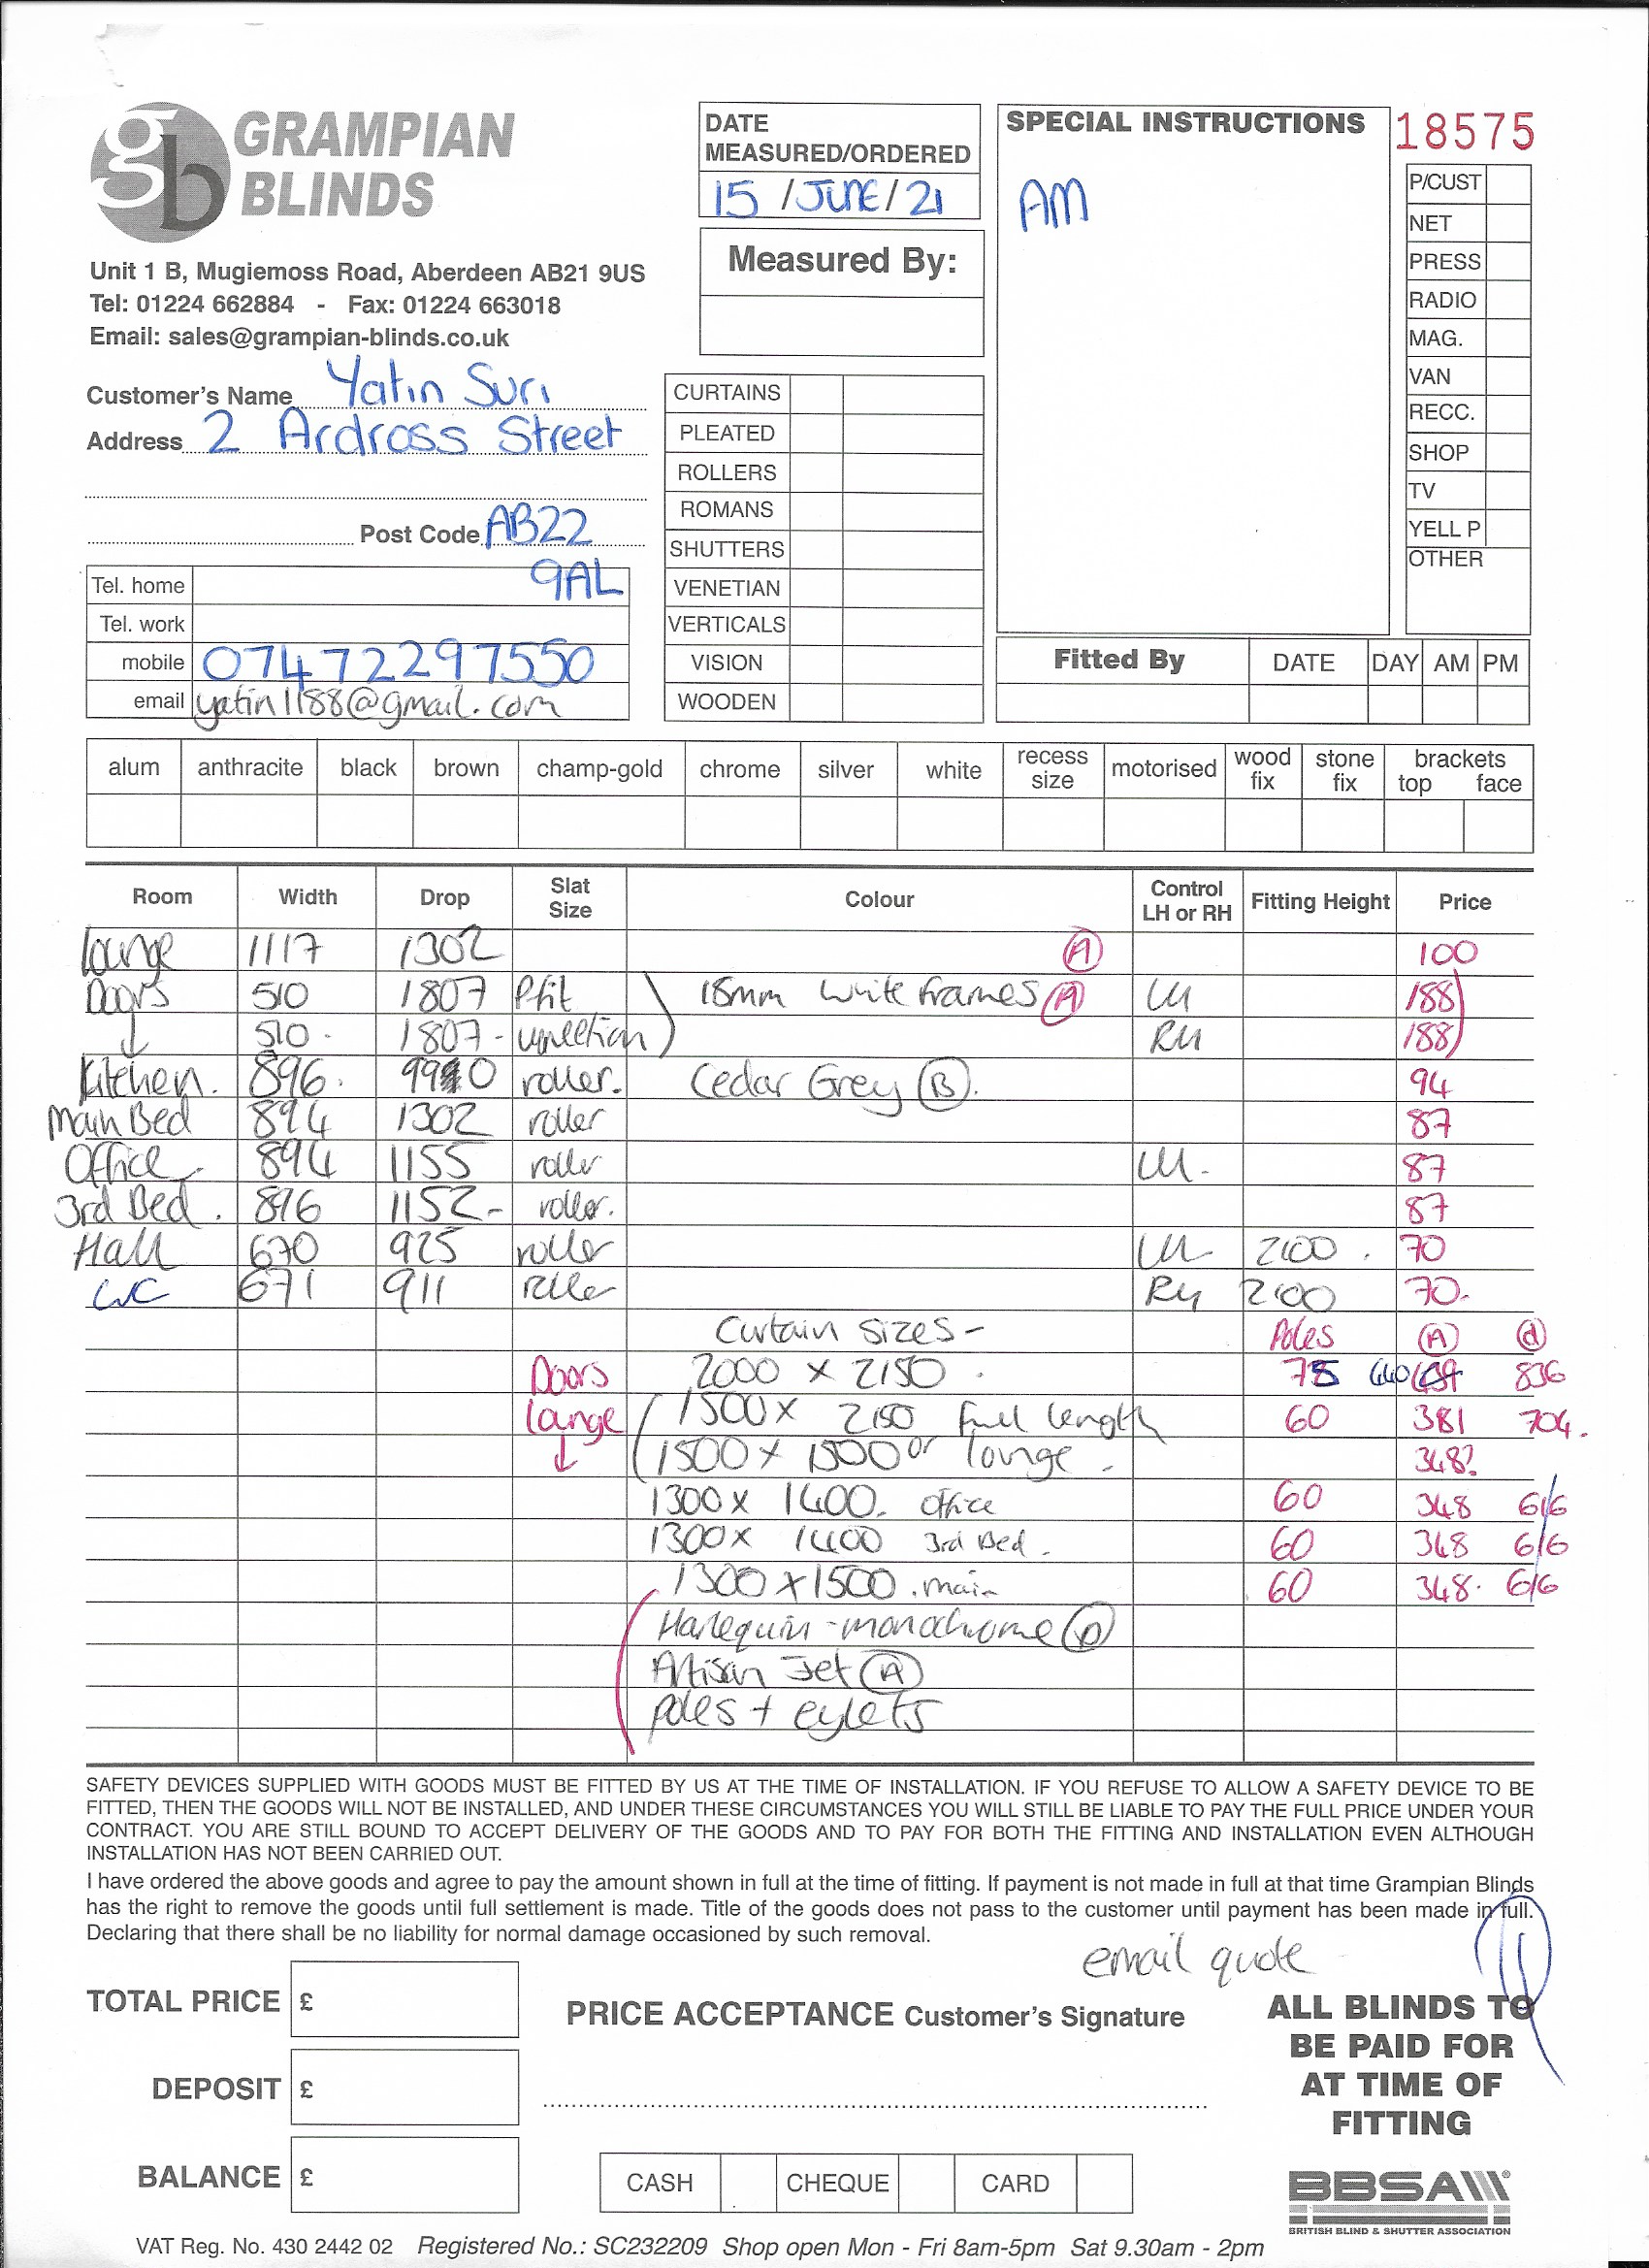 GRAMPIAN
BLINDS
Unit 1 B, Mugiemoss Road, Aberdeen AB21 9US
Tel: 01224 662884 - Fax: 01224 663018
Email: sales@grampian-blinds.co.uk
DATE
MEASURED/ORDERED
15 /JUNE/21
Measured By:
SPECIAL INSTRUCTIONS
AM
18575
P/CUST
NET
PRESS
RADIO
MAG.
VAN
RECC.
SHOP
TV
YELL P
OTHER
Customer's Name Yatin Suri
Address 2 Ardross Street
Post Code AB22
9AL
Tel. home
Tel. work
mobile 07472297550
email yatin1188@gmail.com
CURTAINS
PLEATED
ROLLERS
ROMANS
SHUTTERS
VENETIAN
VERTICALS
VISION
WOODEN
Fitted By DATE DAY AM PM
alum anthracite black brown champ-gold chrome silver white recess size motorised wood fix stone fix brackets top face
Room Width Drop Slat Size Colour Control LH or RH Fitting Height Price
Lounge 1117 1302 A 100
Doors 510 1807 Pfit 15mm White frames A LH 188
510 - 1807 - venetian RH 188
Kitchen. 896. 990 roller. Cedar Grey B. 94
Main Bed 894 1302 roller 87
Office - 894 1155 roller LH - 87
3rd Bed . 896 1152 - roller. 87
Hall 670 925 roller LH 2100 . 70
WC 671 911 roller RH 2100 70.
Curtain sizes - Poles A d
Doors 2000 x 2150 . 75 640 836
lounge 1500 x 2150 full length 60 381 704.
1500 x 1500 or lounge - 348?
1300 x 1400. office 60 348 616
1300 x 1400 3rd Bed . 60 348 616
1300 x 1500 . main 60 348. 616
Harlequin - monochrome D
Artisan Jet A
poles + eylets
SAFETY DEVICES SUPPLIED WITH GOODS MUST BE FITTED BY US AT THE TIME OF INSTALLATION. IF YOU REFUSE TO ALLOW A SAFETY DEVICE TO BE
FITTED, THEN THE GOODS WILL NOT BE INSTALLED, AND UNDER THESE CIRCUMSTANCES YOU WILL STILL BE LIABLE TO PAY THE FULL PRICE UNDER YOUR
CONTRACT. YOU ARE STILL BOUND TO ACCEPT DELIVERY OF THE GOODS AND TO PAY FOR BOTH THE FITTING AND INSTALLATION EVEN ALTHOUGH
INSTALLATION HAS NOT BEEN CARRIED OUT.
I have ordered the above goods and agree to pay the amount shown in full at the time of fitting. If payment is not made in full at that time Grampian Blinds
has the right to remove the goods until full settlement is made. Title of the goods does not pass to the customer until payment has been made in full.
Declaring that there shall be no liability for normal damage occasioned by such removal.
email quote
TOTAL PRICE £
DEPOSIT £
BALANCE £
PRICE ACCEPTANCE Customer's Signature
CASH CHEQUE CARD
ALL BLINDS TO
BE PAID FOR
AT TIME OF
FITTING
BBSA
BRITISH BLIND & SHUTTER ASSOCIATION
VAT Reg. No. 430 2442 02 Registered No.: SC232209 Shop open Mon - Fri 8am-5pm Sat 9.30am - 2pm